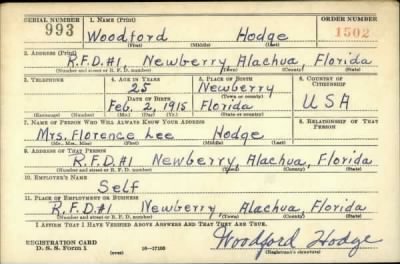 SERIAL NUMBER 1. NAME (Print) ORDER NUMBER
993 Woodford Hodge 1502
(First) (Middle) (Last)
2. ADDRESS (Print)
R.F.D.#1 Newberry, Alachua, Florida
(Number and street or R. F. D. number) (Town) (County) (State)
3. TELEPHONE 4. AGE IN YEARS 5. PLACE OF BIRTH 6. COUNTRY OF CITIZENSHIP
25 Newberry
(Town or county)
DATE OF BIRTH
Feb, 2, 1915 Florida USA
(Exchange) (Number) (Mo.) (Day) (Yr.) (State or country)
7. NAME OF PERSON WHO WILL ALWAYS KNOW YOUR ADDRESS 8. RELATIONSHIP OF THAT PERSON
Mrs. Florence Lee Hodge
(Mr., Mrs., Miss) (First) (Middle) (Last)
9. ADDRESS OF THAT PERSON
R.F.D.#1 Newberry, Alachua, Florida
(Number and street or R. F. D. number) (Town) (County) (State)
10. EMPLOYER'S NAME
Self
11. PLACE OF EMPLOYMENT OR BUSINESS
R.F.D.#1 Newberry, Alachua, Florida
(Number and street or R. F. D. number) (Town) (County) (State)
I AFFIRM THAT I HAVE VERIFIED ABOVE ANSWERS AND THAT THEY ARE TRUE.
REGISTRATION CARD
D. S. S. Form 1 (over) 16—17105 Woodford Hodge
(Registrant's signature)